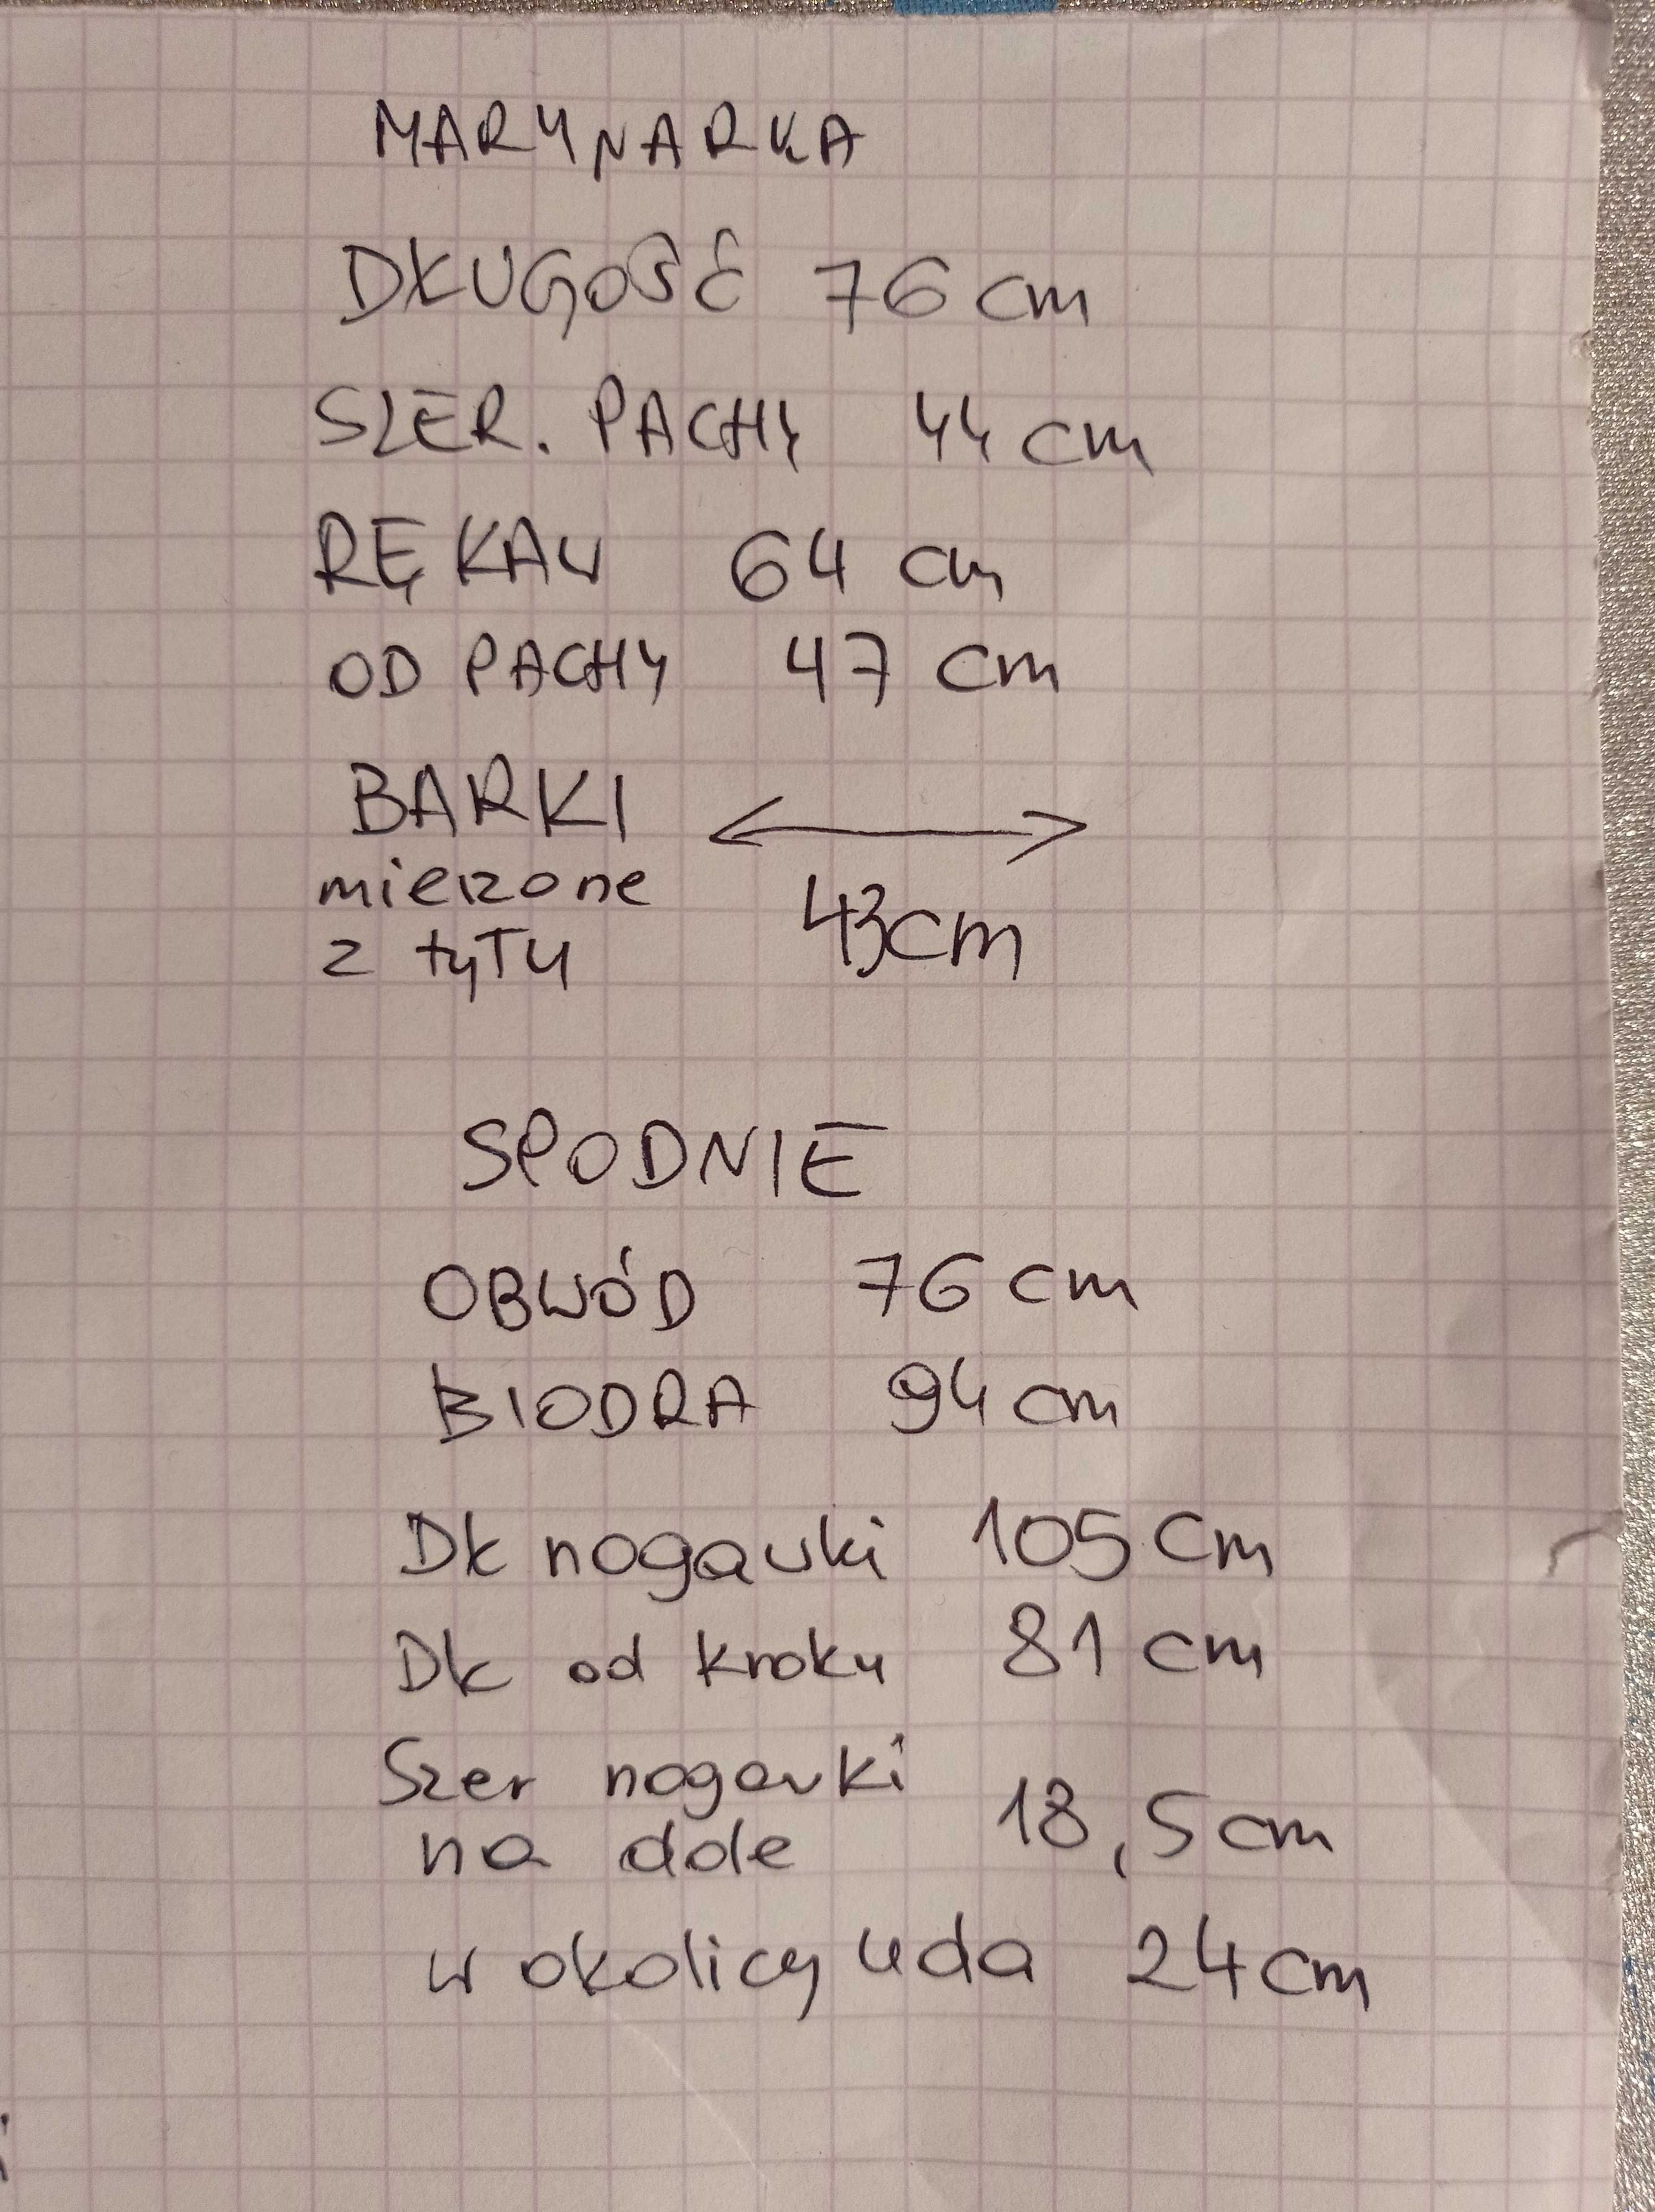 MARYNARKA
DŁUGOŚĆ 76 cm
SZER. PACHY 44 cm
RĘKAW 64 cm
OD PACHY 47 cm
BARKI
mierzone
z tyłu 43cm
SPODNIE
OBWÓD 76 cm
BIODRA 94 cm
Dł nogawki 105 cm
Dł od kroku 81 cm
Szer nogawki
na dole 18,5cm
w okolicy uda 24cm